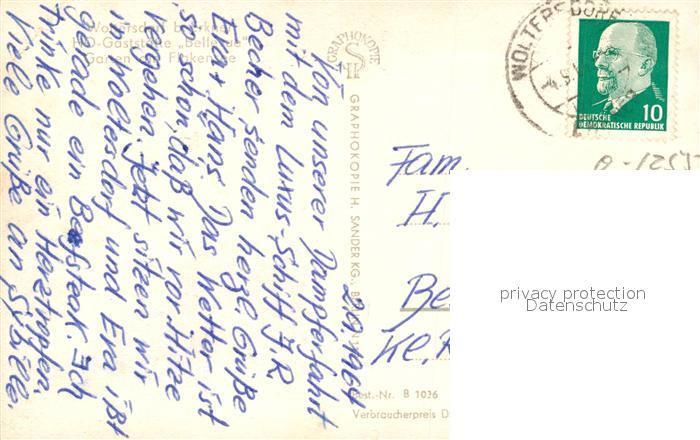 Woltersdorf b. Erkner
HO-Gaststätte „Bellevue“
Garten und Flakensee
2.9.1964
Von unserer Dampferfahrt
mit dem Luxus-Schiff J. R.
Becher senden herzl. Grüße
Eva + Hans. Das Wetter ist
so schön, daß wir vor Hitze
vergehen. Jetzt sitzen wir
in Woltersdorf und Eva ißt
gerade ein Beefsteak. Ich
trinke nur ein Harztropfen.
Viele Grüße an Sibille.
GRAPHOKOPIE
GRAPHOKOPIE H. SANDER KG., B
Best.-Nr. B 1036
Verbraucherpreis D
WOLTERSDORF
10
DEUTSCHE
DEMOKRATISCHE REPUBLIK
Fam.
H.
Be
privacy protection
Datenschutz